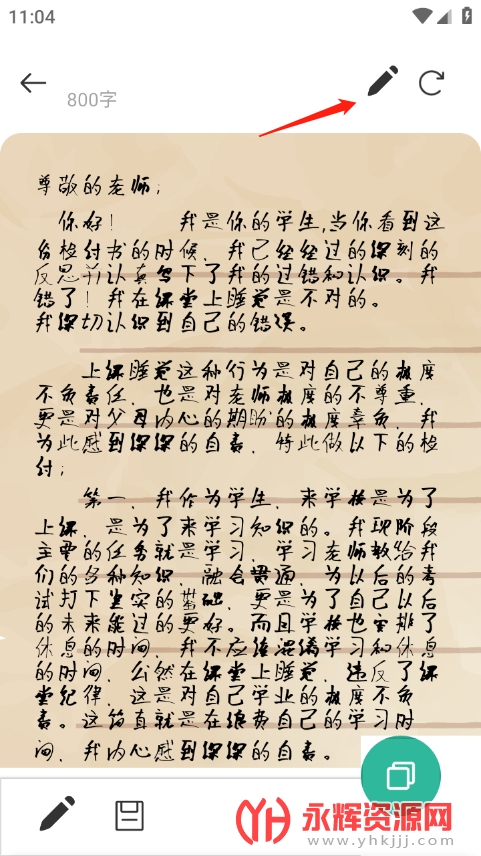 11:04
800字
尊敬的老师;
你好! 我是你的学生,当你看到这
份检付书的时候,我已经经过的深刻的
反思并认真写下了我的过错和认识。我
错了!我在课堂上睡觉是不对的。
我深切认识到自己的错误。
上课睡觉这种行为是对自己的极度
不负责任,也是对老师极度的不尊重,
更是对父母内心的期盼的极度辜负,我
为此感到深深的自责,特此做以下的检
付;
第一,我作为学生,来学校是为了
上课,是为了来学习知识的。我现阶段
主要的任务就是学习,学习老师教给我
们的各种知识,融会贯通,为以后的考
试打下坚实的基础,更是为了自己以后
的未来能过的更好。而且学校也安排了
休息的时间,我不应该混淆学习和休息
的时间,公然在课堂上睡觉,违反了课
堂纪律,这是对自己学业的极度不负
责。这简直就是在浪费自己的学习时
间,我内心感到深深的自责。
永辉资源网
www.yhkjjj.com